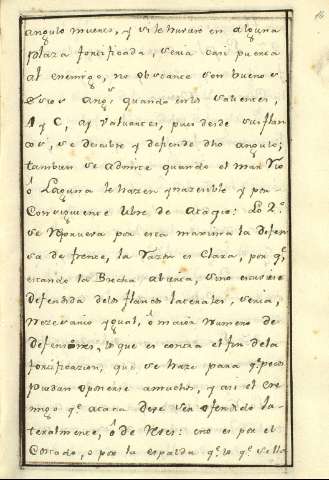 angulo muerto, y si le huviere en alguna
plaza fortificada, seria dar puerta
al enemigo, no obstante son buenos
quando en los salientes,
A y C, ay valuartes, pues desde sus flan
cos, se descubre y defiende dho angulo;
tambien se admite quando el mar Rio
ô Laguna le hazen ynazesible y por
Consiguiente libre de Ataque: Lo 2º
se Reprueva por esta maxima la defen
sa de frente, la Razon es Clara, por q.e
estando la Brecha abierta, sino estuviere
defendida delos flancos laterales, seria,
Nezesario ygual, ô maior Numero de
defensores, lo que es contra el fin dela
fortificazion, que se haze para q.e pocos
puedan oponerse amuchos, y asi el Ene
migo q.e ataca deve ser ofendido la-
teralmente, ô de Reves: esto es por el
Costado, o por la espalda q.e lo q.e se lla